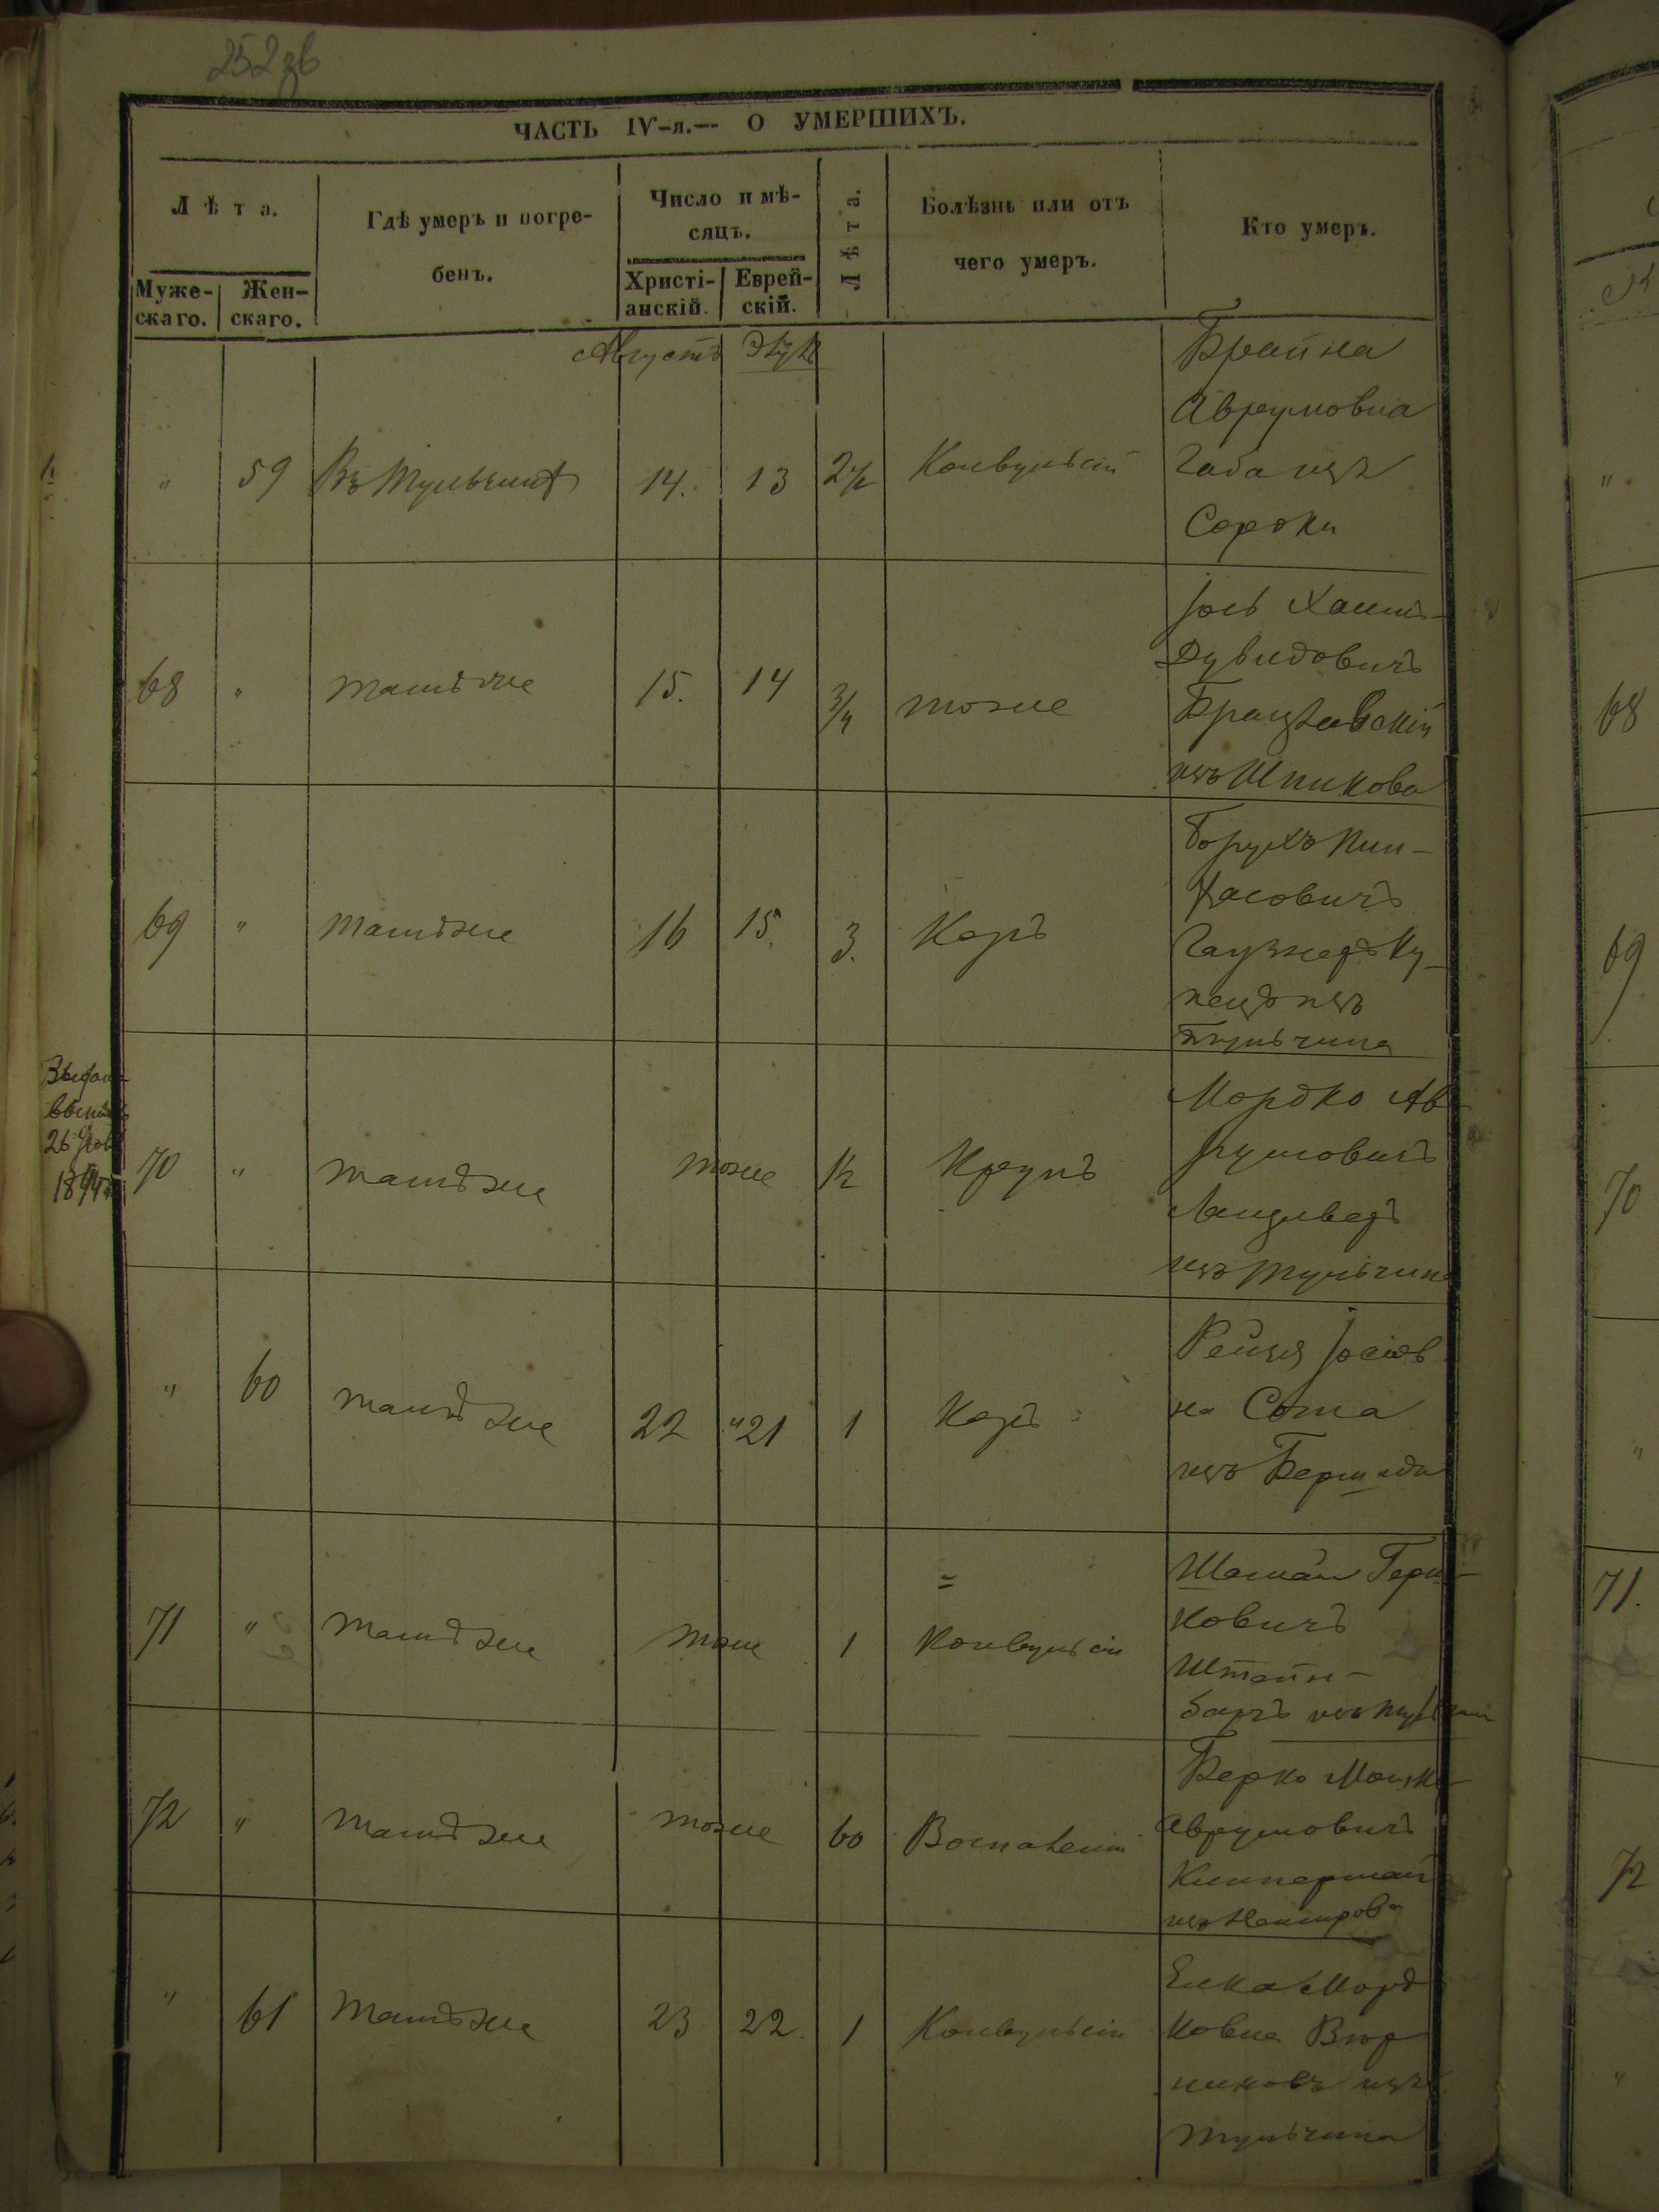 252 зв
ЧАСТЬ IV-я.— О УМЕРШИХЪ.
Лѣта.
Муже-
скаго.
Жен-
скаго.
Гдѣ умеръ и погре-
бенъ.
Число и мѣ-
сяцъ.
Христі-
анскій.
Еврей-
скій.
Лѣта.
Болѣзнь или отъ
чего умеръ.
Кто умеръ.
Августъ Элулъ
" 59 Въ Тульчинѣ 14. 13 2½ Конвульсіи
Брайна
Аврумовна
изъ
Сороки
68 " тамъ же 15. 14 3/4 тоже
Іось Хаимъ-
Дувидовичъ
Брацлавскій
изъ Шпикова
69 " тамъ же 16 15. 3. Корь
Борухъ Пин-
хасовичъ
Ку-
пецъ изъ
Тульчина
Выдана
26
70 " тамъ же тоже ½ Крупъ
Мордко Ав-
румовичъ
изъ Тульчина
" 60 тамъ же 22 "21 1 Корь
Рейзя Іосіов-
на Сота
изъ Бершади
71 " тамъ же тоже 1 Конвульсіи
Герш-
ковичъ
Штейн-
бергъ изъ Тульчина
72 " тамъ же тоже 60 Воспаленіи
Берко Мошко-
Аврумовичъ
Киперманъ
изъ Немирова
" 61 тамъ же 23 22. 1 Конвульсіи
Елка Морд
ковна
изъ
Тульчина
"
68
69
70
"
71.
72
"